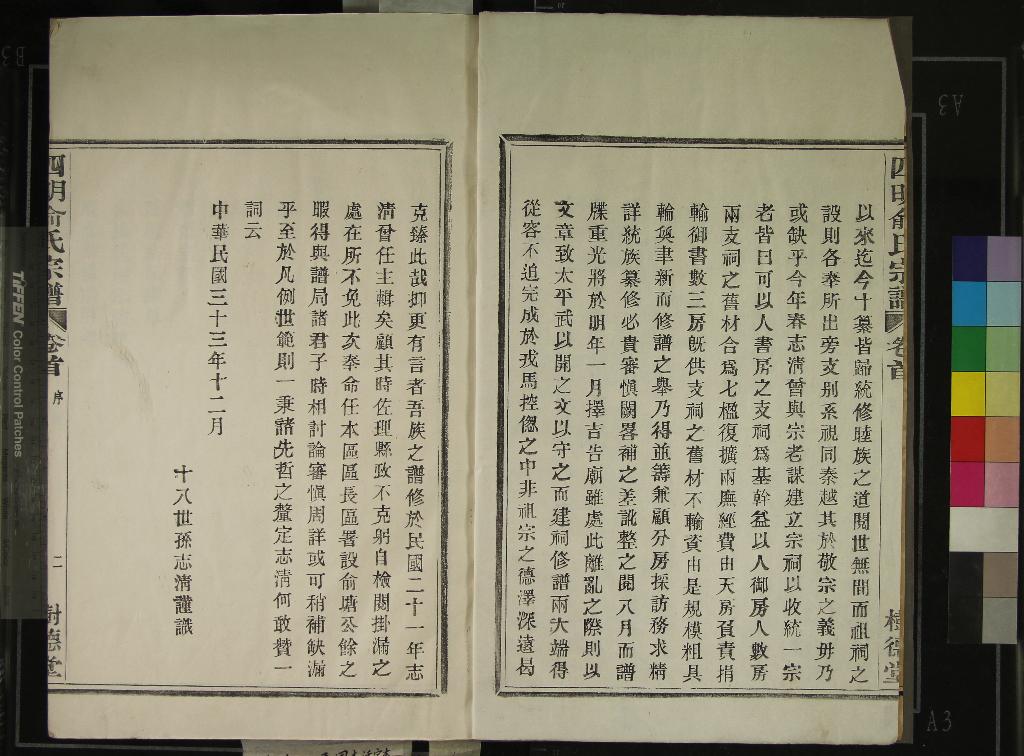 四明俞氏宗譜 卷首
樹德堂
以來迄今十纂皆歸統修睦族之道閱世無間而祖祠之
設則各奉所出旁支别系視同秦越其於敬宗之義毋乃
或缺乎今年春志淸曾與宗老謀建立宗祠以收統一宗
老皆曰可以人書房之支祠爲基幹益以人御房人數房
兩支祠之舊材合爲七楹復擴兩廡經費由天房負責捐
輸御書數三房旣供支祠之舊材不輸資由是規模粗具
輪奐聿新而修譜之舉乃得並籌兼顧分房採訪務求精
詳統族纂修必貴審愼闕畧補之差訛整之閱八月而譜
牒重光將於明年一月擇吉告廟雖處此離亂之際則以
文章致太平武以開之文以守之而建祠修譜兩大端得
從容不迫完成於戎馬控偬之中非祖宗之德澤深遠曷
克臻此哉抑更有言者吾族之譜修於民國二十一年志
淸曾任主輯矣顧其時佐理縣政不克躬自檢閱掛漏之
處在所不免此次奉命任本區區長區署設俞塘公餘之
暇得與譜局諸君子時相討論審愼周詳或可稍補缺漏
乎至於凡例世範則一秉諸先哲之釐定志淸何敢贊一
詞云
中華民國三十三年十二月
十八世孫志淸謹識
四明俞氏宗譜 卷首 序 二 樹德堂
TIFFEN Color Control Patches
A3
A3
B3